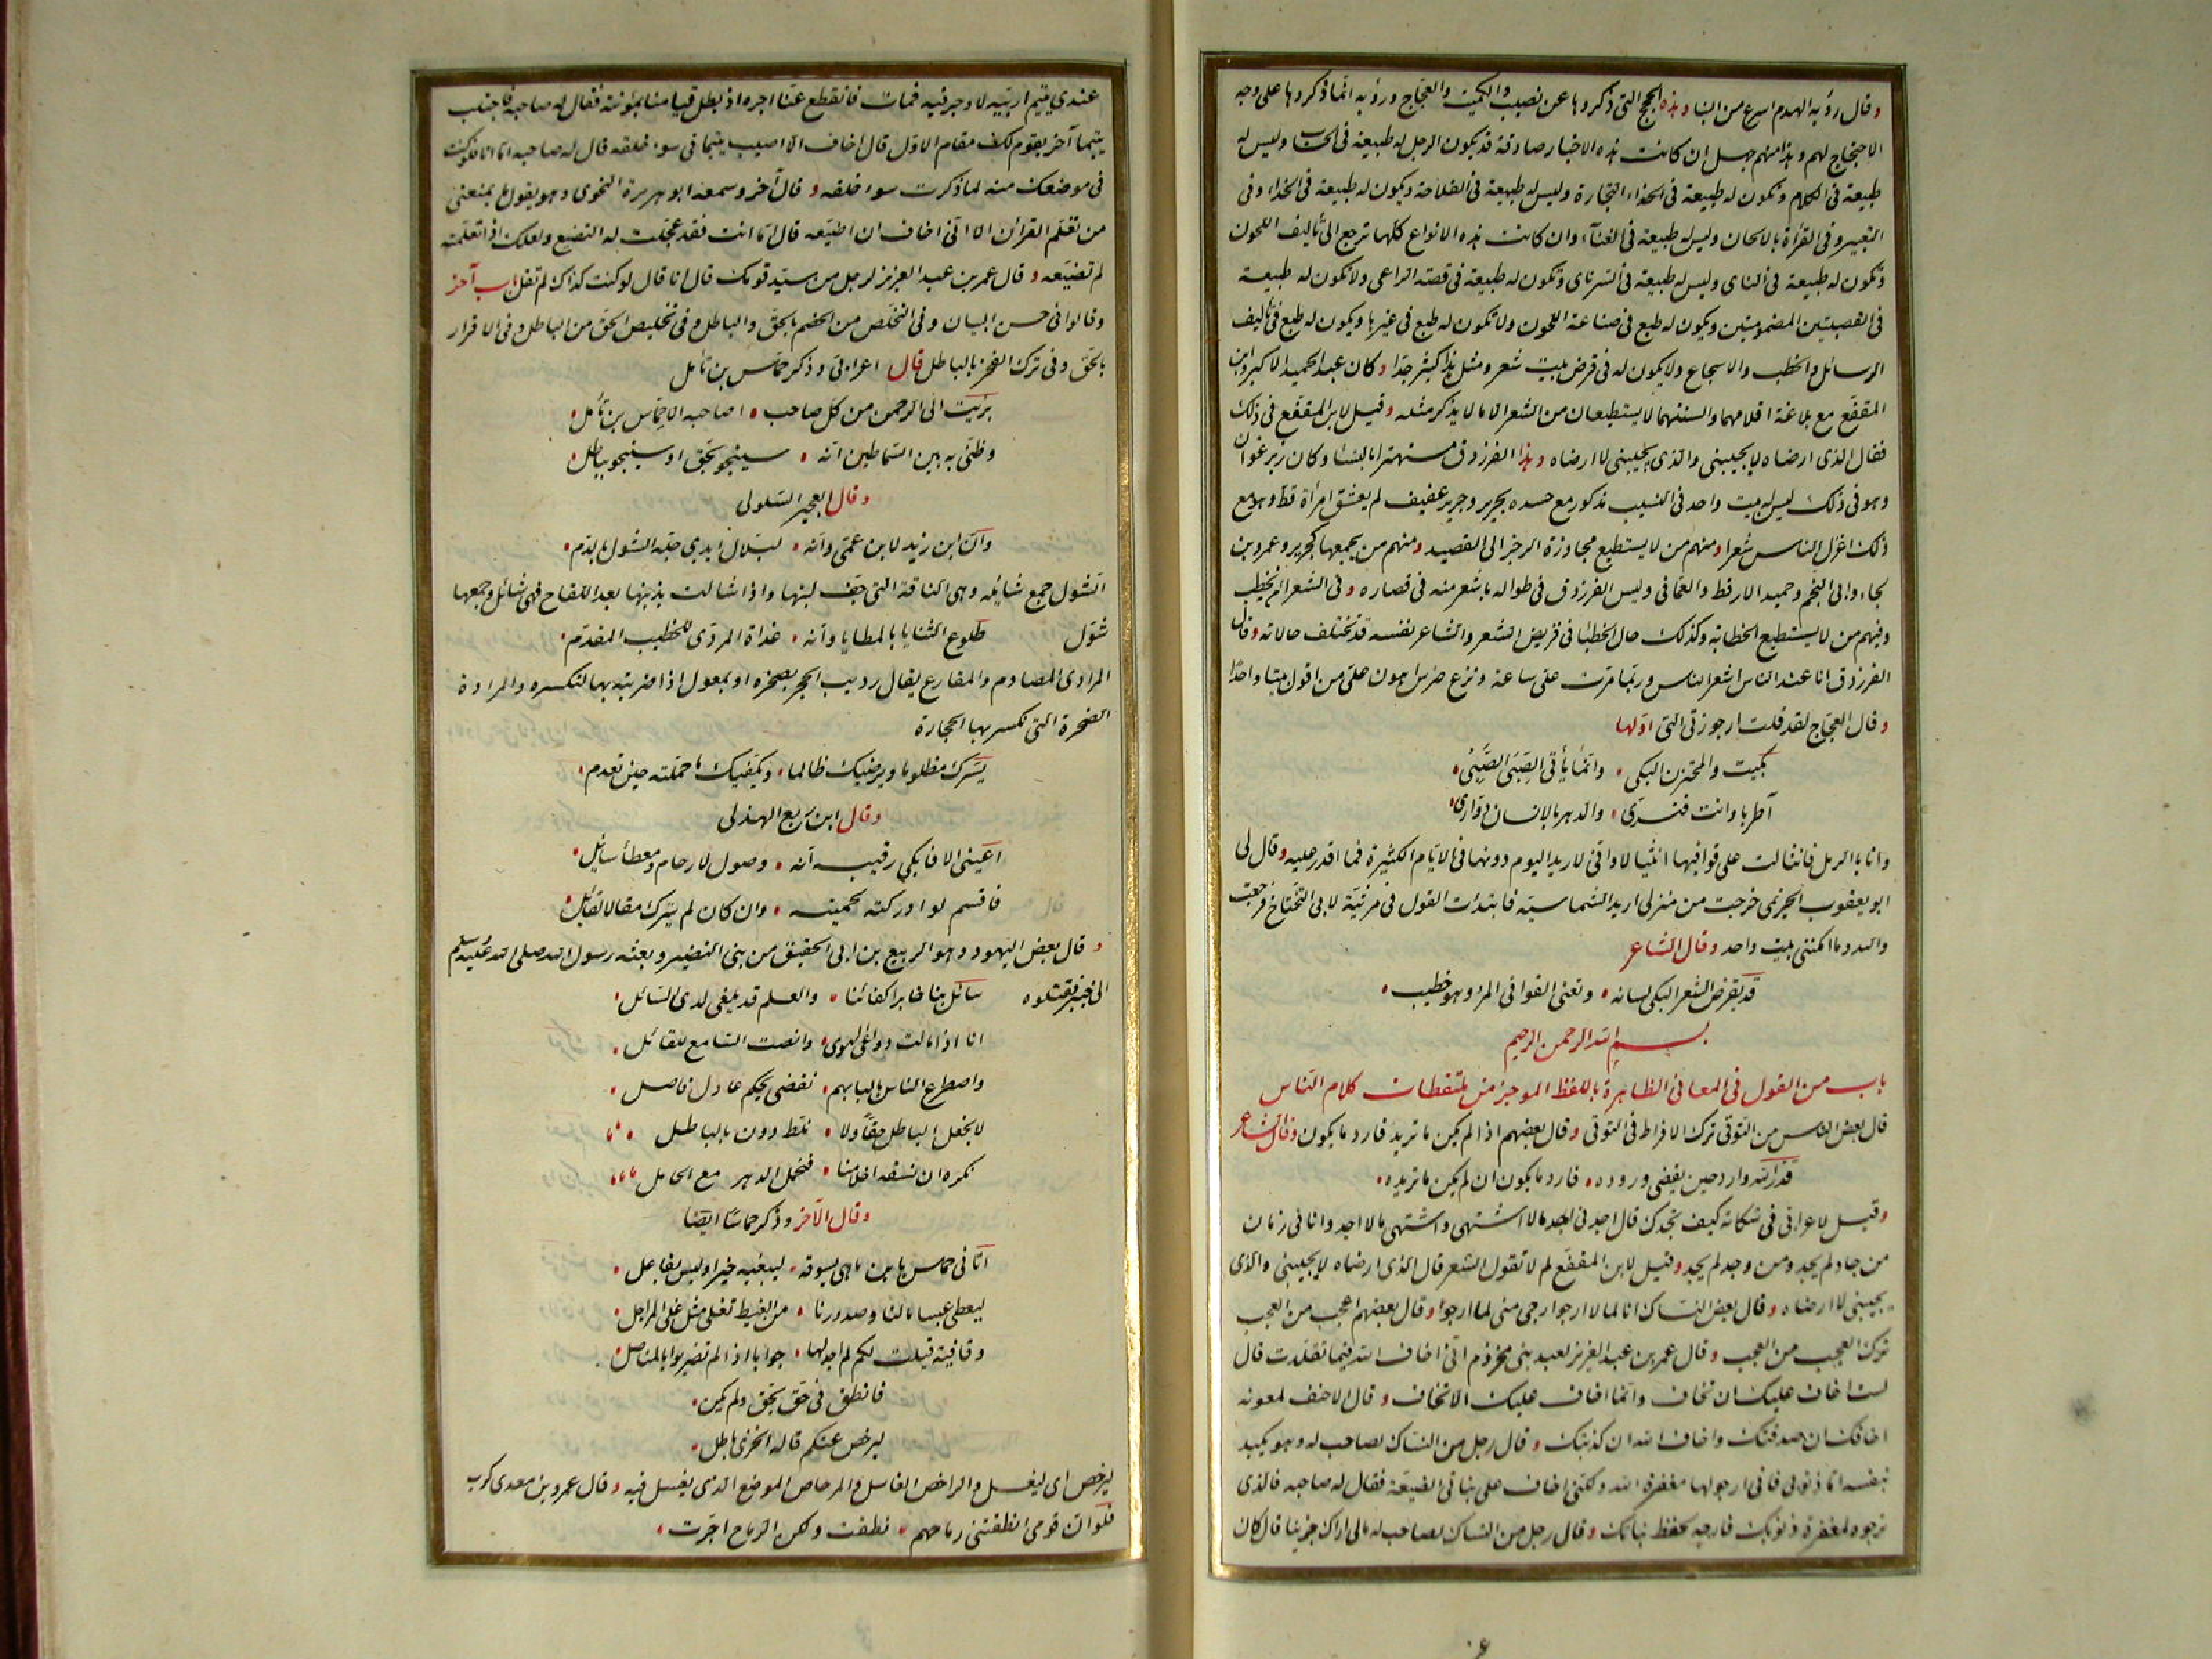 وقال رؤبة الهدم اسرع من البنا وهذه الحجج التي ذكروها عن نصيب والكميت والعجاج ورؤبة انما ذكروها على وجه
الاحتجاج لهم وهذا منهم جهل ان كانت هذه الاخبار صادقة قد يكون الرجل له طبيعة في الحساب وليس له
طبيعة في الكلام وتكون له طبيعة في التجارة وليس له طبيعة في الفلاحة ويكون له طبيعة في الحداء وفي
التغبير وفي القرأة بالالحان وليس له طبيعة في الغنآء وان كانت هذه الانواع كلها ترجع الى تأليف اللحون
وتكون له طبيعة في الناي وليس له طبيعة في السرناي وتكون له طبيعة في قصبة الراعي ولا تكون له طبيعة
في القصبتين المضمومتين ويكون له طبع في صناعة اللحون ولا تكون له طبع في غيرها ويكون له طبع في تأليف
الرسائل والخطب والاسجاع ولا يكون له في قرض بيت شعر ومثل هذا كثير جدا وكان عبد الحميد الاكبر وابن
المقفع مع بلاغة اقلامهما والسنتهما لا يستطيعان من الشعر الا ما لا يذكر مثله وقيل لابن المقفع في ذلك
فقال الذي ارضاه لا يجيبني والذي يجيبني لا ارضاه وهذا الفرزدق مستهترا بالنسا وكان زير غوان
وهو في ذلك ليس له بيت واحد في النسيب مذكور مع حسده بجرير وجرير عفيف لم يعشق امرأة قط وهو مع
ذلك اغزل الناس شعرا ومنهم من لا يستطيع مجاوزة الرجز الى القصيد ومنهم من يجمعها كجرير وعمرو بن
لجاء وابي النجم وحميد الارقط والعماني وليس الفرزدق في طواله باشعر منه في قصاره وفي الشعرا من يخطب
وفيهم من لا يستطيع الخطابة وكذلك حال الخطبا في قريض الشعر والشاعر نفسه قد تختلف حالاته وقال
الفرزدق انا عند الناس اشعر الناس وربما مرت علي ساعة ونزع ضرس اهون علي من اقول بيتا واحدا
وقال العجاج لقد قلت ارجوزتي التي اولها
بكيت والمحتزن البكي • وانما يأتي الصبى الصبي •
أطربا وانت قنسري • والدهر بالانسان دواري
وانا بالرمل فانثالت علي قوافيها انثيالا واني لاريد اليوم دونها في الايام الكثيرة فما اقدر عليه وقال لي
ابو يعقوب الخزيمي خرجت من منزلي اريد الشماسية فابتدات القول في مرثية لابي التختاخ فرجعت
والله وما امكنني بيت واحد وقال الشاعر
قد يقرض الشعر البكي لسانه • وتعيى القوافي المرء وهو خطيب •
بسم الله الرحمن الرحيم
باب من القول في المعاني الظاهرة باللفظ الموجز من ملتقطات كلام الناس
قال بعض الناس من التوقي ترك الافراط في التوقي وقال بعضهم اذا لم يكن ما تريد فارد ما يكون وقال الشاعر
قدر الله وارد حين يقضي وروده • فارد ما يكون ان لم يكن ما تريده •
وقيل لاعرابي في شكاته كيف تجدك قال اجدني اجد ما لا اشتهي واشتهي ما لا اجد وانا في زمان
من جاد لم يجد ومن وجد لم يجد وقيل لابن المقفع لم لا تقول الشعر قال الذي ارضاه لا يجيبني والذي
يجيبني لا ارضاه وقال بعض النساك انا لما لا ارجوا ارجى مني لما ارجوا وقال بعضهم اعجب من العجب
ترك العجب من العجب وقال عمر بن عبد العزيز لعبد بني مخزوم اني اخاف الله فيما تقلدت قال
لست اخاف عليك ان تخاف وانما اخاف عليك الا تخاف وقال الاحنف لمعوية
اخافك ان صدقتك واخاف الله ان كذبتك وقال رجل من النساك لصاحب له وهو يكيد
بنفسه اما ذنوبي فاني ارجو لها مغفرة الله ولكني اخاف على بناتي الضيعة فقال له صاحبه فالذي
ترجوه لمغفرة ذنوبك فارجه لحفظ بناتك وقال رجل من النساك لصاحب له مالي اراك حزينا قال كان
عندي يتيم اربيه لاوجر فيه فمات فانقطع عنا اجره اذ بطل قيامنا بمؤنته فقال له صاحبه فاجتلب
يتيما آخر يقوم لك مقام الاول قال اخاف الا اصيب يتيما في سوء خلقه قال له صاحبه اما انا فلو كنت
في موضعك منه لما ذكرت سوء خلقه وقال آخر وسمعه ابو هريرة النحوي وهو يقول ما يمنعني
من تعلم القرآن الا اني اخاف ان اضيعه قال اما انت فقد عجلت له التضييع ولعلك اذا تعلمته
لم تضيعه وقال عمر بن عبد العزيز لرجل من سيد قومك قال انا قال لو كنت كذاك لم تقل باب آخر
وقالوا في حسن البيان وفي التخلص من الخصم بالحق والباطل وفي تخليص الحق من الباطل وفي الاقرار
بالحق وفي ترك الفخر بالباطل قال اعرابي وذكر حماس بن ثامل
برئت الى الرحمن من كل صاحب • اصاحبه الا حماس بن ثامل •
وظني به بين السماطين انه • سينجو بحق او سينجو بباطل •
وقال العجير السلولي
وان ابن زيد لابن عمي وانه • لبلال ايدي جلة الشول بالدم •
الشول جمع شايلة وهي الناقة التي جف لبنها واذا شالت بذنبها بعد اللقاح فهي شائل وجمعها
شول طلوع الثنايا بالمطايا وانه • غداة المرادي للخطيب المقدم •
المرادي المصادم والمقارع يقال رديت الحجر بصخرة او بمعول اذا ضربته بها لتكسره والمرداة
الصخرة التي تكسر بها الحجارة
يسرك مظلوما ويرضيك ظالما • ويكفيك ما حملته حين تغرم •
وقال ابن ربع الهذلي
اعيني الا فابكي رقيبة انه • وصول لارحام ومعطاء سائل •
فاقسم لو ادركته لحميته • وان كان لم يترك مقالا لقائل •
وقال بعض اليهود وهو الربيع بن ابي الحقيق من بني النضير وبعثه رسول الله صلى الله عليه وسلم
الى خيبر فقتلوه سائل بنا خابر اكفائنا • والعلم قد يلفى لدى السائل •
انا اذا مالت دواعي الهوى • وانصت السامع للقائل •
واصطرع الناس بالبابهم • نقضي بحكم عادل فاصل •
لا نجعل الباطل حقا ولا • نلظ دون بالباطل •
نكره ان نسفه احلامنا • فنخمل الدهر مع الخامل
وقال الآخر وذكر حماسا ايضا
اتاني حماس بابن ماهي يسوقه • ليبغيه خيرا وليس بفاعل •
ليعطي عبسا مالنا وصدورنا • من الغيظ تغلي مثل غلي المراجل •
وقافية قيلت لكم لم اجد لها • جوابا اذا لم تضربوا بالمناصل •
فانطق في حق بحق ولم يكن •
ليرحض عنكم قاله الخزي باطل •
ليرحض اي ليغسل والراحض الغاسل والمرحاض الموضع الذي يغسل فيه وقال عمرو بن معدي كرب
فلو ان قومي انطقتني رماحهم • نطقت ولكن الرماح اجرت •